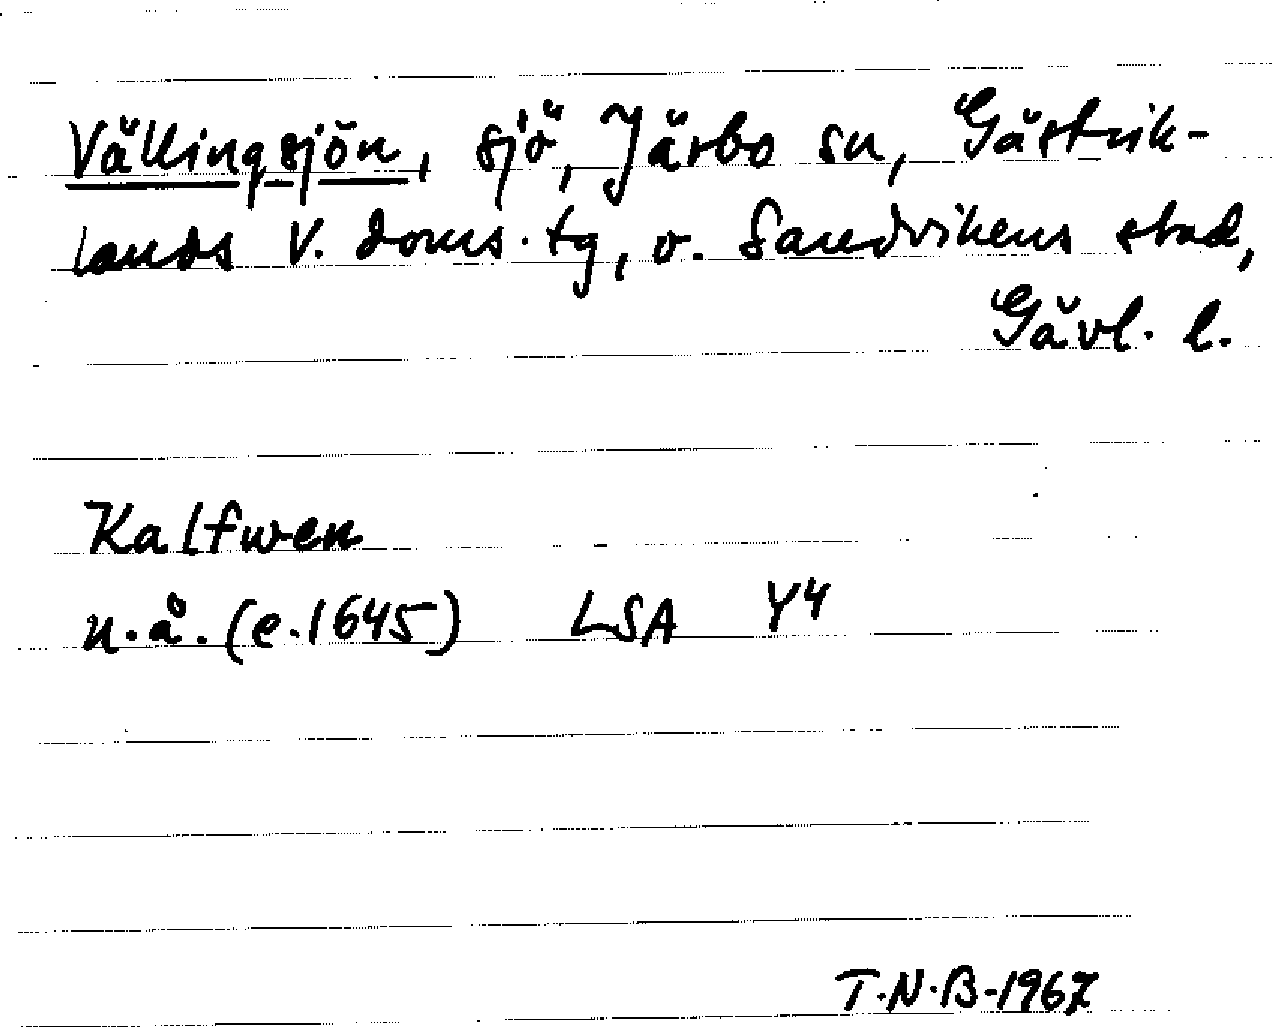 Vällingsjön, sjö, Järbo sn, Gästrik-
lands V. doms. tg, o. Sandvikens stad,
Gävl. l.
Kalfwen
n.å. (e.1645) LSA Y4
T.N.B-1967